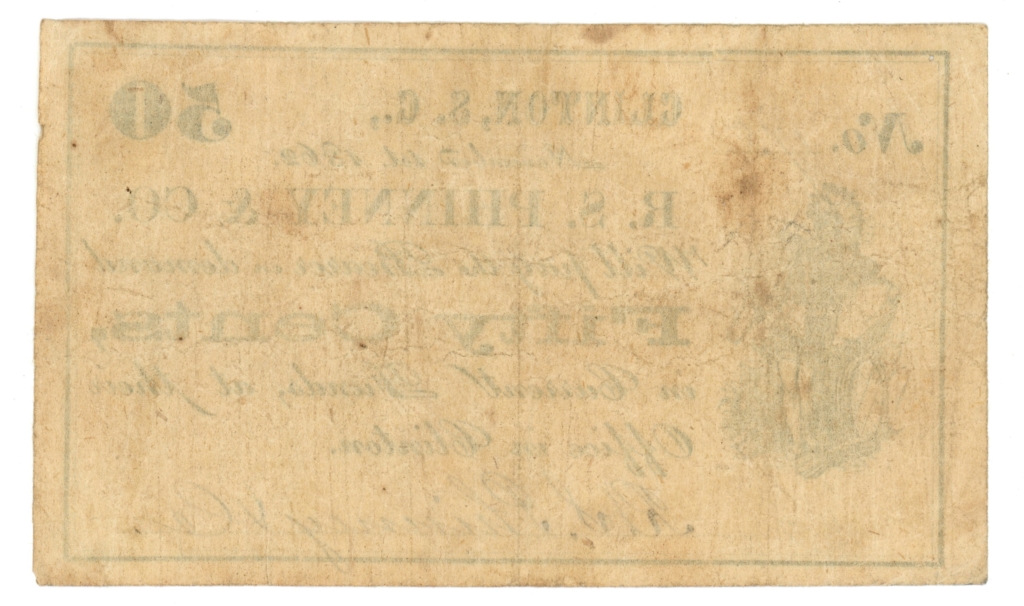 No.
50
CLINTON, S. C.,
1st 1862.
R. S. PHINNEY & CO.
Will pay the Bearer on demand
Fifty Cents,
in Current Funds, at their
Office in Clinton.
R. S. Phinney & Co.